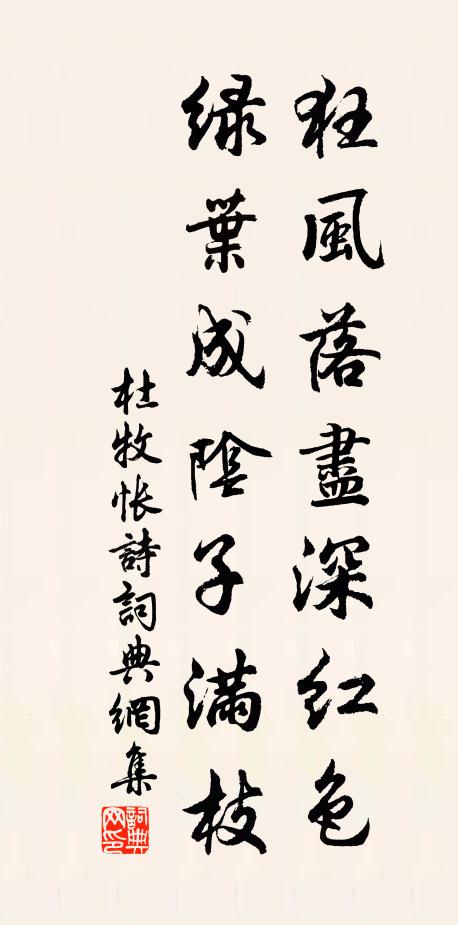 狂風落盡深紅色
綠葉成陰子滿枝
杜牧悵詩詞典網集
詞典网印